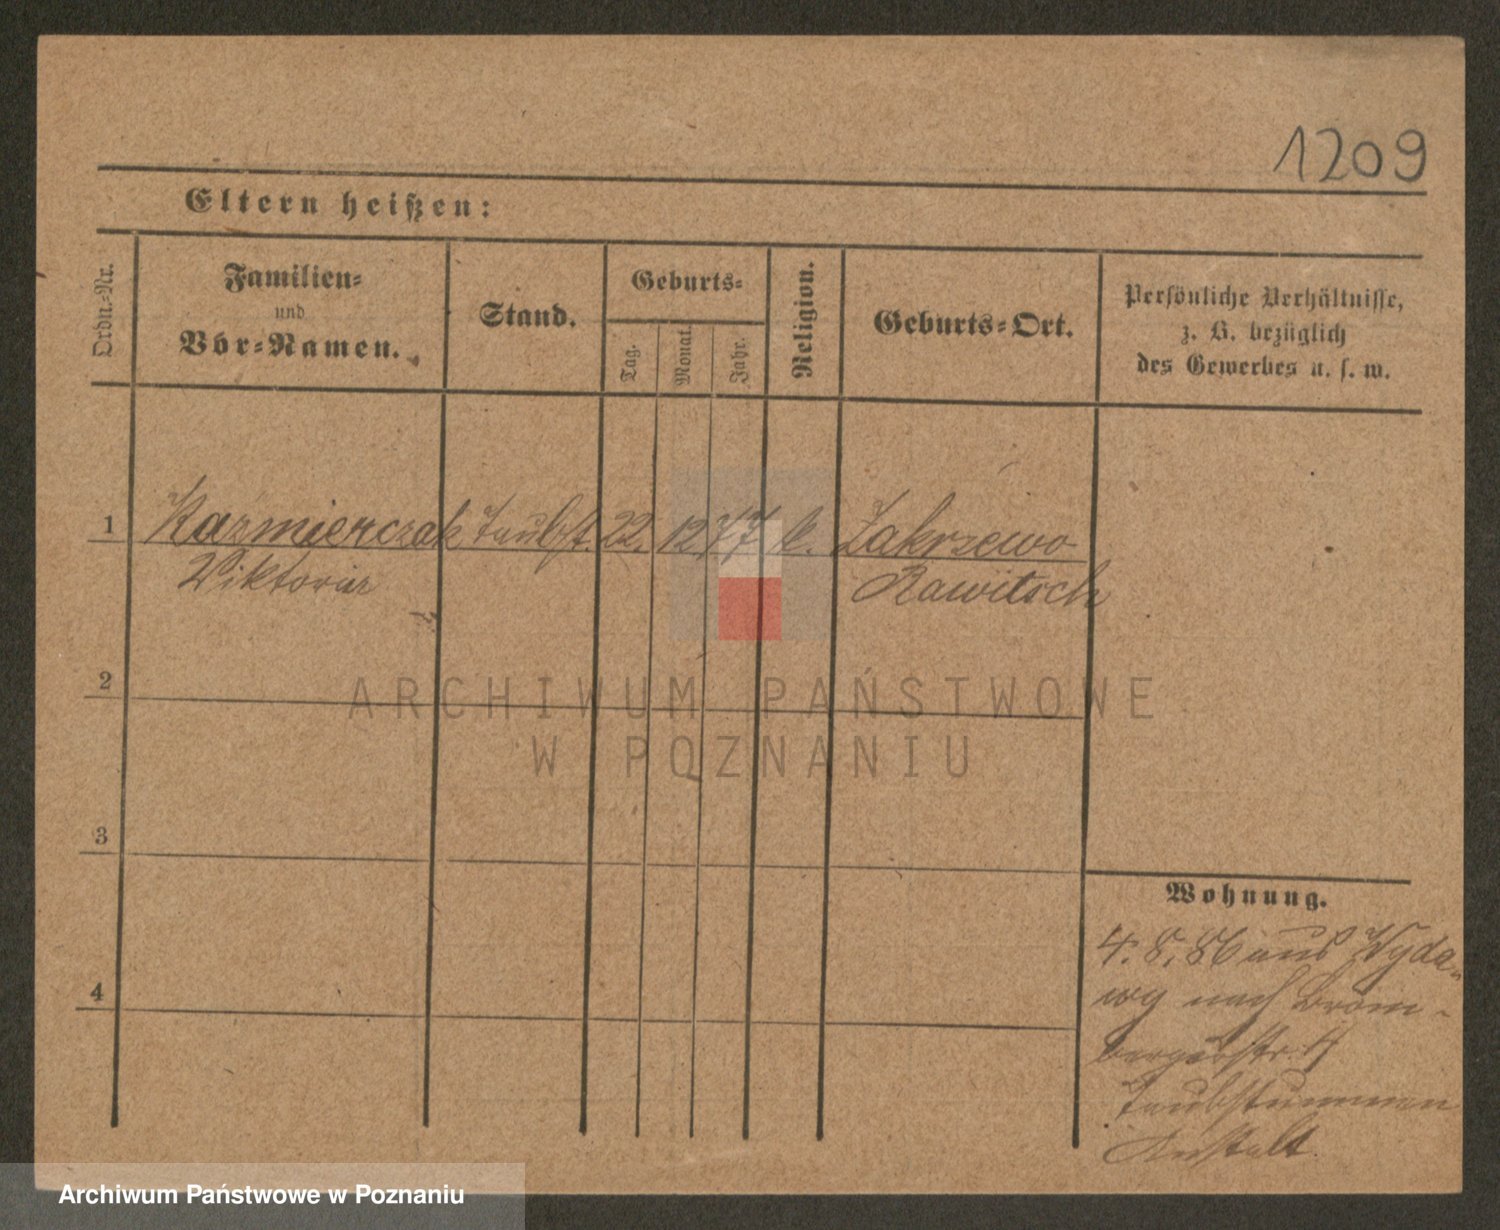 1209
Eltern heißen:
Ordn.-Nr.
Familien-
und
Vor-Namen.
Stand.
Geburts-
Tag.
Monat.
Jahr.
Religion.
Geburts-Ort.
Persönliche Verhältnisse,
z. B. bezüglich
des Gewerbes u. s. w.
1 Kazmierczak Taubst. 22. 12 77 k. Zakrzewo
Viktoria Rawitsch
2
3
4
Wohnung.
4. 8. 86 aus Wyda-
wy nach Brom-
bergerstr. 4
Taubstummen
Anstalt.
ARCHIWUM PAŃSTWOWE
W POZNANIU
Archiwum Państwowe w Poznaniu